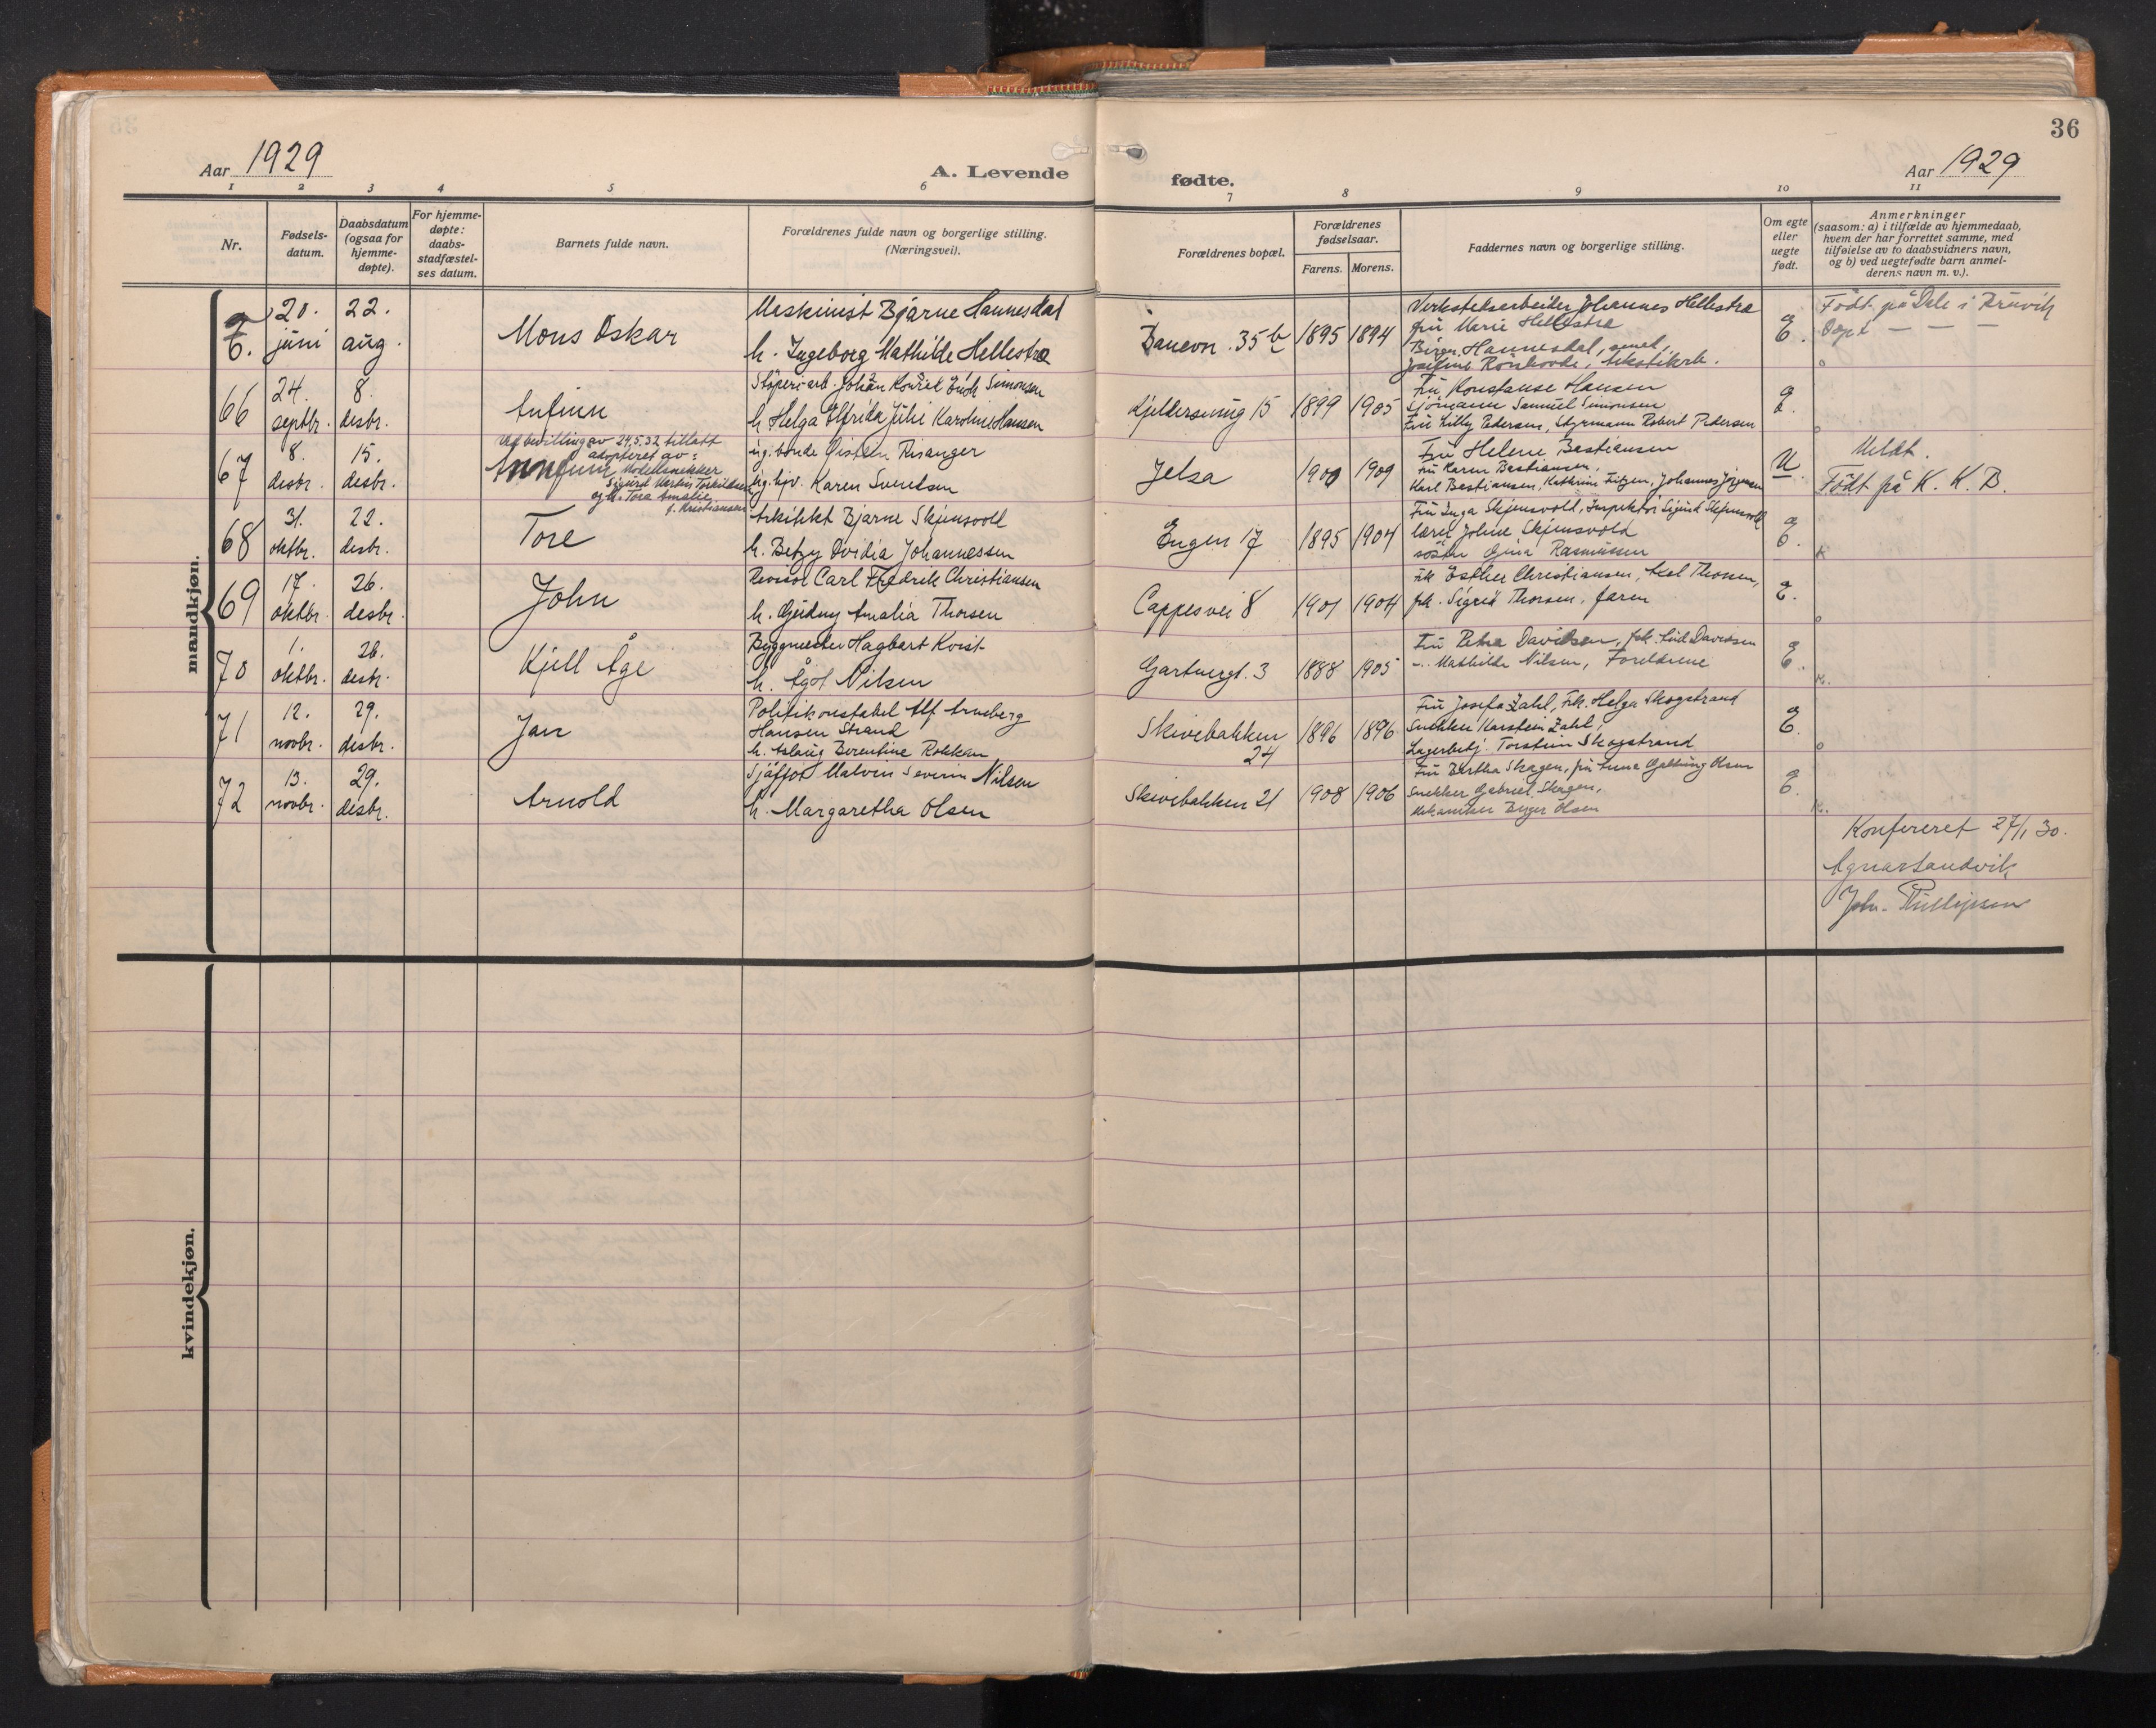 36
Aar 1929
A. Levende
fødte.
Aar 1929
1 2 3 4 5 6 7 8 9 10 11
Nr.
Fødsels-
datum.
Daabsdatum
(ogsaa for
hjemme-
døpte).
For hjemme-
døpte:
daabs-
stadfæstel-
ses datum.
Barnets fulde navn.
Forældrenes fulde navn og borgerlige stilling.
(Næringsvei).
Forældrenes bopæl.
Forældrenes
fødselsaar.
Farens. Morens.
Faddernes navn og borgerlige stilling.
Om egte
eller
uegte
født.
Anmerkninger
(saasom: a) i tilfælde av hjemmedaab,
hvem der har forrettet samme, med
tilføielse av to daabsvidners navn,
og b) ved uegtefødte barn anmel-
derens navn m. v.).
mandkjøn.
20.
juni
22.
aug.
Mons Oskar
Maskinist Bjarne Hannesdal
h. Ingeborg Mathilde Hellestrø
35 b
1895 1894
Verkstedsarbeider Johannes Hellestrø
fru Marie Hellestrø
Hannesdal,
Josefine
E.
Født på Dale i Bruvik
Døpt — — —
66
24.
septbr.
8.
desbr.
Anfinn
Støperiarb. Johan Konrad Simonsen
h Helga Elfrida Julie Karoline Hansen
15
1899 1905
Fru Konstanse Hansen
Sjømann Samuel Simonsen
Fru Lilly Pedersen, Styrmann Robert Pedersen
E.
67
8.
desbr.
15.
desbr.
Ved bevilling av 24.5.32 tillatt
adopteret av:
Modellsnekker
Sigurd Martin Torkildsen
og h. Tora Amalie
f. Kristiansen
Arnfinn
ug. bonde Øistein Risanger
ug. tjv. Karen Svendsen
Jelsa
1900 1909
Fru Helene Bastiansen
Fru Karen Bastiansen,
Karl Bastiansen, Kathrine Johannes Jørgensen
U.
Meldt.
Født på K. K. B.
68
31.
oktbr.
22.
desbr.
Tore
Arkitekt Bjarne Skjensvold
h. Betzy Ovidia Johannessen
Engen 17
1895 1904
Fru Inga Skjensvold, Inspektør Sigurd Skjensvold
lærer Johne Skjensvold
søster Gina Rasmussen
E.
69
17.
oktbr.
26.
desbr.
John
Revisor Carl Fredrik Christiansen
h. Gudny Amalia Thorsen
Cappesvei 8
1901 1904
Frk Esther Christiansen, Axel Thorsen,
frk. Sigrid Thorsen, faren
E.
70
1.
oktbr.
26.
desbr.
Kjell Åge
Byggmester Hagbart Kvist
h. Ågot Nilsen
Gartnergt. 3
1888 1905
Fru Petra Davidsen, frk. Davidsen
-..- Mathilde Nilsen, Foreldrene
E.
71
12.
novbr.
29.
desbr.
Jan
Politikonstabel Alf Arneberg
Hansen Strand
h. Aslaug Berentine Rokkan
Skivebakken
24
1896 1896
Fru Josefa Zahl, Frk. Helga Skogstrand
Snekker Karstein Zahl,
Lagerbetj. Torstein Skogstrand
E.
72
13.
novbr.
29.
desbr.
Arnold
Sjåfør Malvin Severin Nilsen
h. Margaretha Olsen
Skivebakken 21
1908 1906
Fru Bertha Skagen, fru Anna Olsen
Snekker Gabriel Skagen,
Mekaniker Birger Olsen
E.
Konfereret 27/1 30.
Agnar Sandvik
Joh. Phillipsen
kvindekjøn.